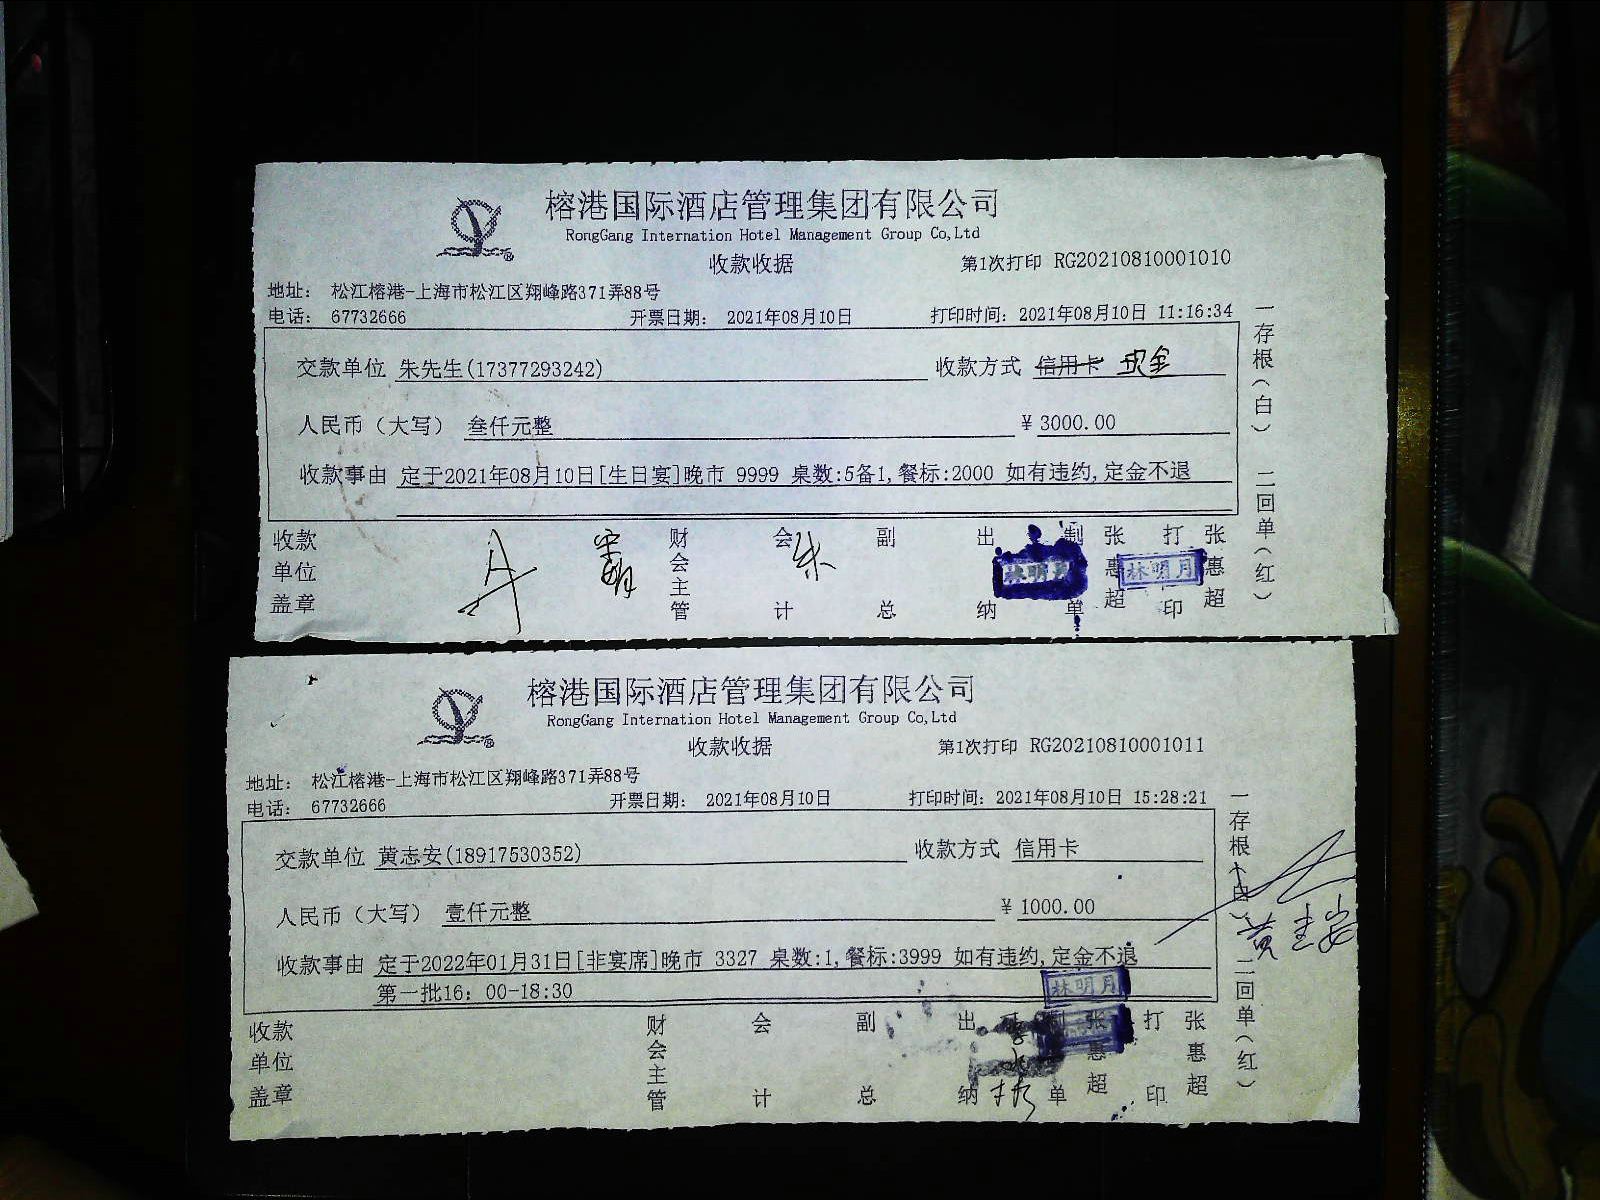 榕港国际酒店管理集团有限公司
RongGang Internation Hotel Management Group Co,Ltd
收款收据
第1次打印 RG20210810001010
地址： 松江榕港-上海市松江区翔峰路371弄88号
电话： 67732666 开票日期： 2021年08月10日 打印时间：2021年08月10日 11:16:34
交款单位 朱先生(17377293242) 收款方式 信用卡 现金
人民币（大写） 叁仟元整 ￥3000.00
收款事由 定于2021年08月10日[生日宴]晚市 9999 桌数:5备1,餐标:2000 如有违约,定金不退
收款单位盖章 财会主管 会计 朱 副总 出纳 制单 张惠超 打印 张惠超
林明月 林明月
一存根（白） 二回单（红）
榕港国际酒店管理集团有限公司
RongGang Internation Hotel Management Group Co,Ltd
收款收据
第1次打印 RG20210810001011
地址： 松江榕港-上海市松江区翔峰路371弄88号
电话： 67732666 开票日期： 2021年08月10日 打印时间：2021年08月10日 15:28:21
交款单位 黄志安(18917530352) 收款方式 信用卡
人民币（大写） 壹仟元整 ￥1000.00
收款事由 定于2022年01月31日[非宴席]晚市 3327 桌数:1,餐标:3999 如有违约,定金不退
第一批16：00-18:30
林明月
收款单位盖章 财会主管 会计 副总 出纳 制单 张惠超 打印 张惠超
一存根（白） 二回单（红）